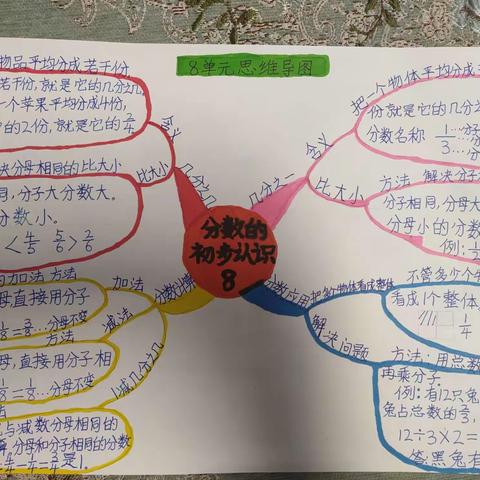 8单元思维导图
分数的
初步认识
8
物品平均分成若干份
若干份,就是它的几分之几
一个苹果平均分成4份,
的2份,就是它的2/4
含义
几分之几
比大小
分母相同的比大小
同,分子大分数大。
分数小。
< 4/5 5/6 > 2/6
几分之一
含义
把一个物体平均分成
份就是它的几分之
分数名称 1…分子
3…分
比大小
方法 解决分子
分子相同,分母大
分母小的分数
例:1/2
加法 方法
加法
母直接用分子
/8=3/8…分母不变
减法
方法
母,直接用分子相
/8=1/8…分母不变
1减几分之几
与减数分母相同的
分母和分子相同的分数
是1.
分数应用
把多个物体看成整体
不管多少个
看成1个整体
1/4
解决问题
方法:用总数
再乘分子
例:有12只兔
兔占总数的2/3,
12÷3×2=
答:黑兔有